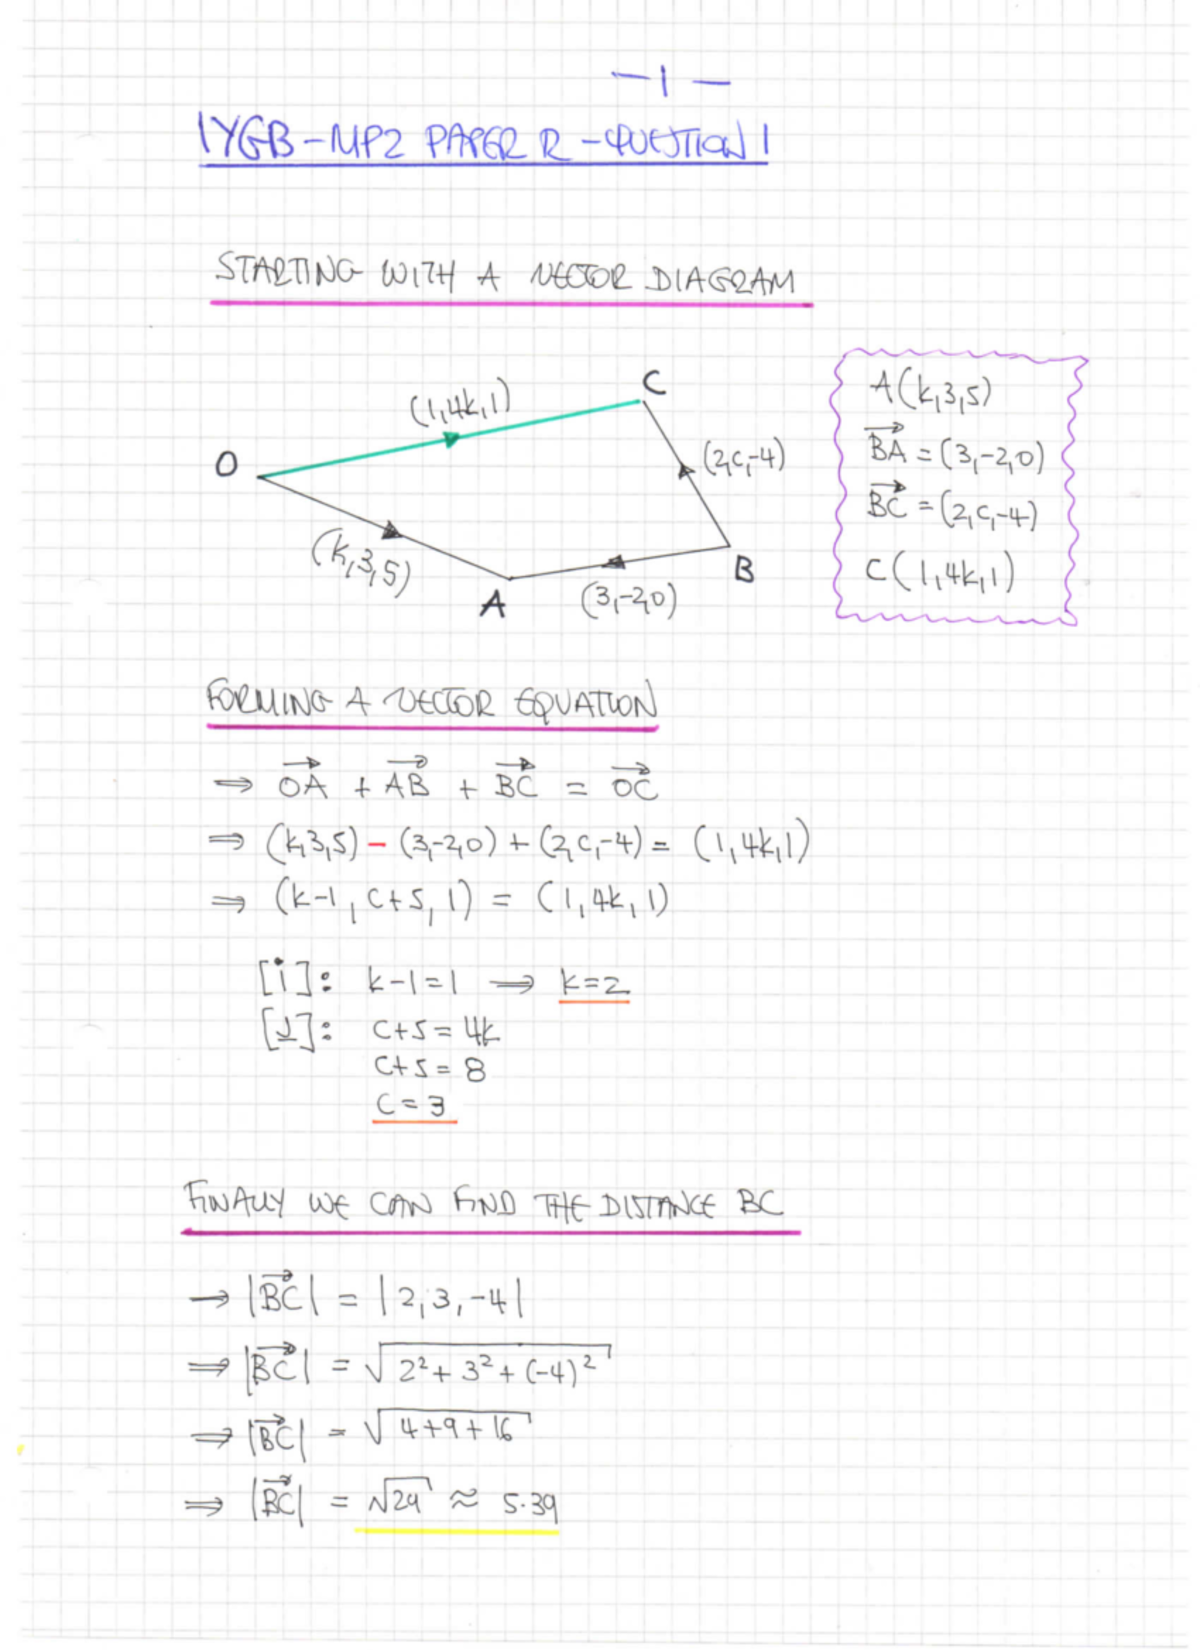 -1-
IYGB-MP2 PAPER R-QUESTION 1
STARTING WITH A VECTOR DIAGRAM
C
(1,4k,1)
O
(2,c,-4)
(k,3,5)
B
A
(3,-2,0)
A(k,3,5)
BA→ = (3,-2,0)
BC→ = (2,c,-4)
C(1,4k,1)
FORMING A VECTOR EQUATION
⇒ OA→ + AB→ + BC→ = OC→
⇒ (k,3,5) - (3,-2,0) + (2,c,-4) = (1,4k,1)
⇒ (k-1, c+5, 1) = (1,4k,1)
[i]: k-1=1 ⇒ k=2
[j]: c+5=4k
c+5=8
c=3
FINALLY WE CAN FIND THE DISTANCE BC
→ |BC→| = |2,3,-4|
⇒ |BC→| = √(2²+3²+(-4)²)
⇒ |BC→| = √(4+9+16)
⇒ |BC→| = √29 ≈ 5.39